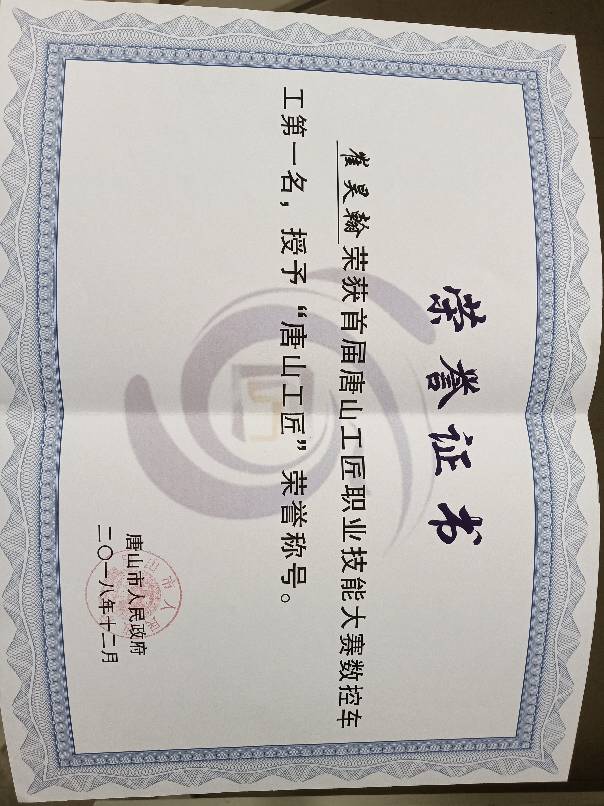 荣誉证书
崔昊翰荣获首届唐山工匠职业技能大赛数控车
工第一名，授予“唐山工匠”荣誉称号。
唐山市人民政府
二〇一八年十二月